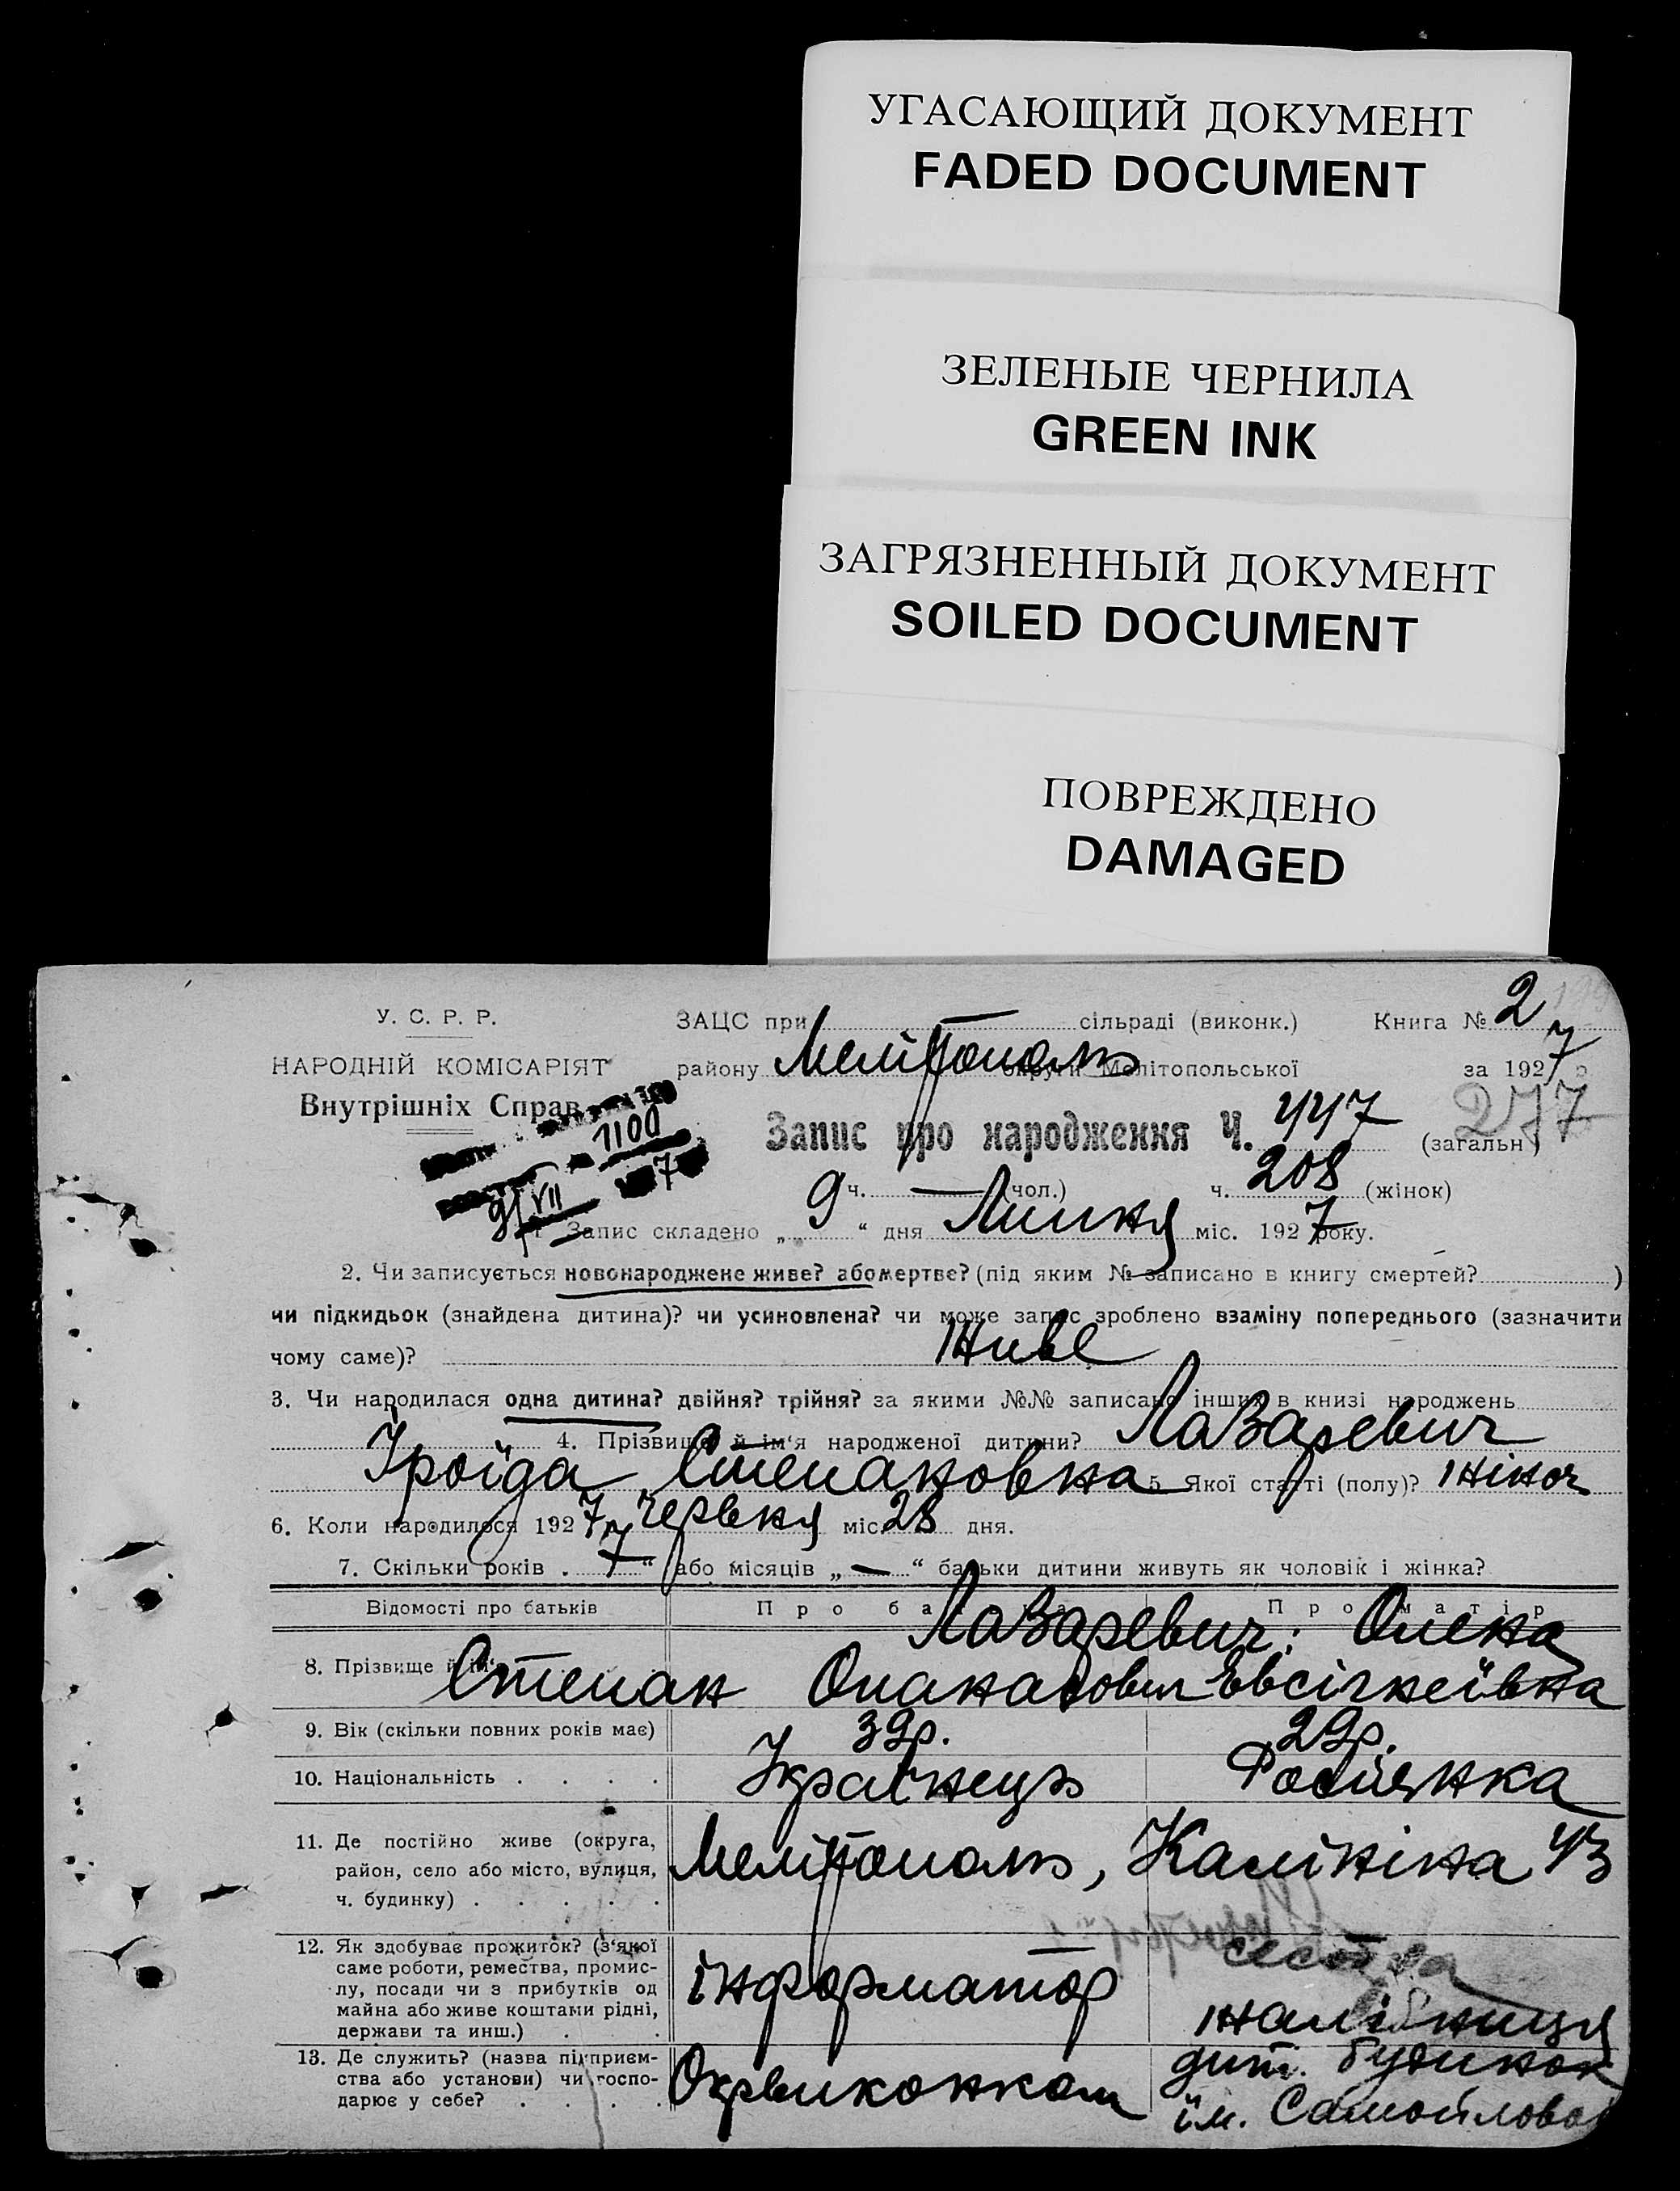 УГАСАЮЩИЙ ДОКУМЕНТ
FADED DOCUMENT
ЗЕЛЕНЫЕ ЧЕРНИЛА
GREEN INK
ЗАГРЯЗНЕННЫЙ ДОКУМЕНТ
SOILED DOCUMENT
ПОВРЕЖДЕНО
DAMAGED
У. С. Р. Р.
НАРОДНІЙ КОМІСАРІЯТ
Внутрішніх Справ
1100
7
9/VII
ЗАЦС при сільраді (виконк.) Книга № 2
району Мелітополь округи Мелітопольської за 1927 р
277
Запис про народження Ч. 447 (загальн)
ч. — (чол.) ч. 208 (жінок)
1 Запис складено „ 9 “ дня Липня міс. 1927 року.
2. Чи записується новонароджене живе? або мертве? (під яким № записано в книгу смертей? )
чи підкидьок (знайдена дитина)? чи усиновлена? чи може запис зроблено взаміну попереднього (зазначити
чому саме)? живе
3. Чи народилася одна дитина? двійня? трійня? за якими №№ записано інших в книзі народжень
4. Прізвище й ім‘я народженої дитини? Лазаревич
Іроїда Степановна 5 Якої статті (полу)? жіноч
6. Коли народилося 1927 р червня міс. 28 дня.
7. Скільки років . 7 “ або місяців „ — “ батьки дитини живуть як чоловік і жінка?
Відомості про батьків Про батька Про матір
8. Прізвище й ім‘я Лазаревич: Олена
Степан Опанасович Євсігнеївна
9. Вік (скільки повних років має) 39р. 29р.
10. Національність . . . . Українець Росіянка
11. Де постійно живе (округа,
район, село або місто, вулиця,
ч. будинку) . . . . .
Мелітополь, Калініна 43
12. Як здобуває прожиток? (з‘якої
саме роботи, ремества, промис-
лу, посади чи з прибутків од
майна або живе коштами рідні,
держави та инш.) . .
інформатор
сестра
жалібниця
13. Де служить? (назва підприєм-
ства або установи) чи госпо-
дарює у себе? . . . .
Окрвиконком
дит. будинок
ім. Самойлової